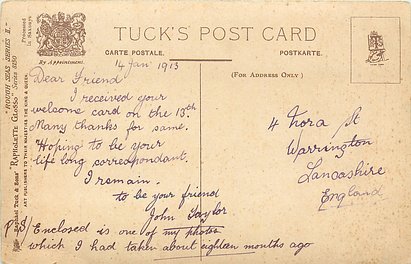 TUCK'S POST CARD
CARTE POSTALE.
POSTKARTE.
By Appointment.
(For Address Only)
14 Jan 1913
Dear Friend
I received your
welcome card on the 13th
Many thanks for same.
Hoping to be your
life long correspondant.
I remain.
to be your friend
John Taylor
P.S/ Enclosed is one of my photos
which I had taken about eighteen months ago
4 Nora St
Warrington
Lancashire
England
"ROUGH SEAS SERIES II."
Raphael Tuck & Sons' "RAPHOLETTE GLOSSO"
ART PUBLISHERS TO THEIR MAJESTIES THE KING & QUEEN.
Processed
in Saxony.